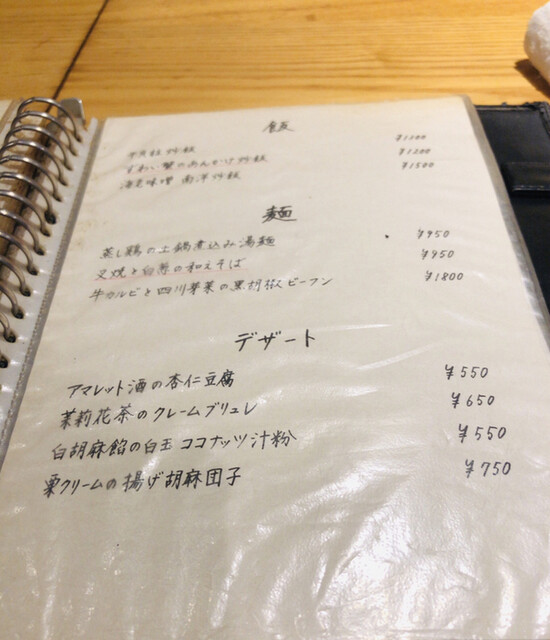 飯
炒飯 ¥1200
ずわい蟹のあんかけ炒飯 ¥1200
海老味噌 南洋炒飯 ¥1500
麺
蒸し鶏の土鍋煮込み湯麺 ¥950
叉焼と白葱の和えそば ¥950
牛カルビと四川芽菜の黒胡椒ビーフン ¥1800
デザート
アマレット酒の杏仁豆腐 ¥550
茉莉花茶のクレームブリュレ ¥650
白胡麻餡の白玉 ココナッツ汁粉 ¥550
栗クリームの揚げ胡麻団子 ¥750